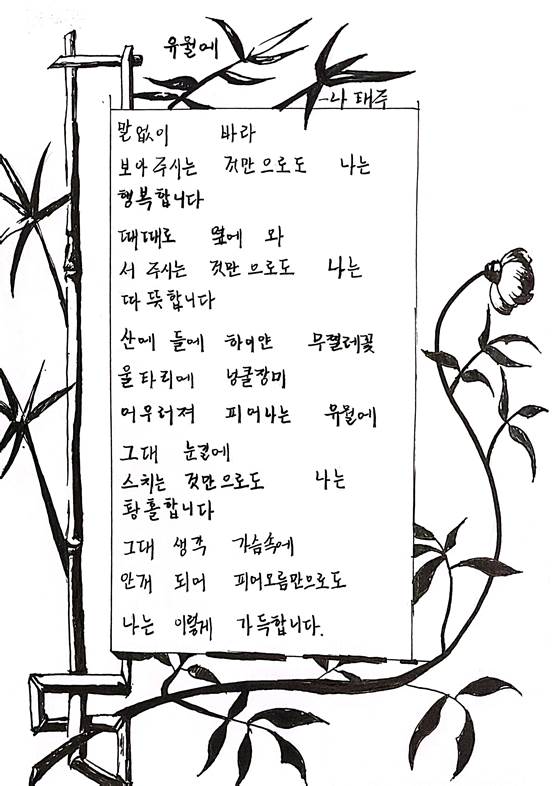 유월에
-나 태주
말없이 바라
보아 주시는 것만으로도 나는
행복합니다
때때로 옆에 와
서 주시는 것만으로도 나는
따뜻합니다
산에 들에 하이얀 무찔레꽃
울타리에 넝쿨장미
어우러져 피어나는 유월에
그대 눈길에
스치는 것만으로도 나는
황홀합니다
그대 생각 가슴속에
안개 되어 피어오름만으로도
나는 이렇게 가득합니다.